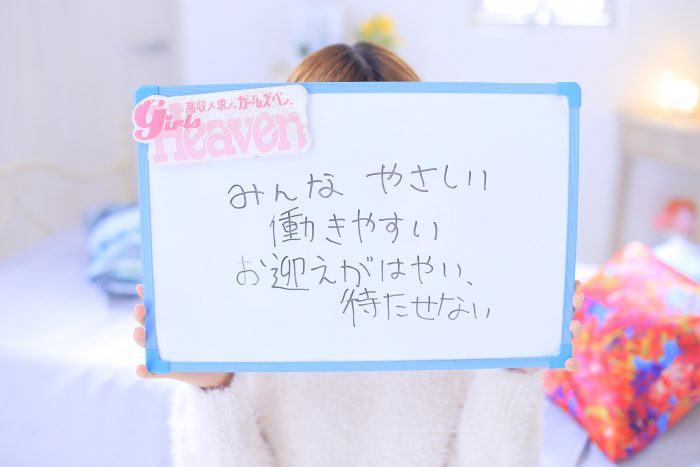 高収入求人ガールズヘブン
Girls
Heaven
みんな やさしい
働きやすい
お迎えがはやい、
待たせない